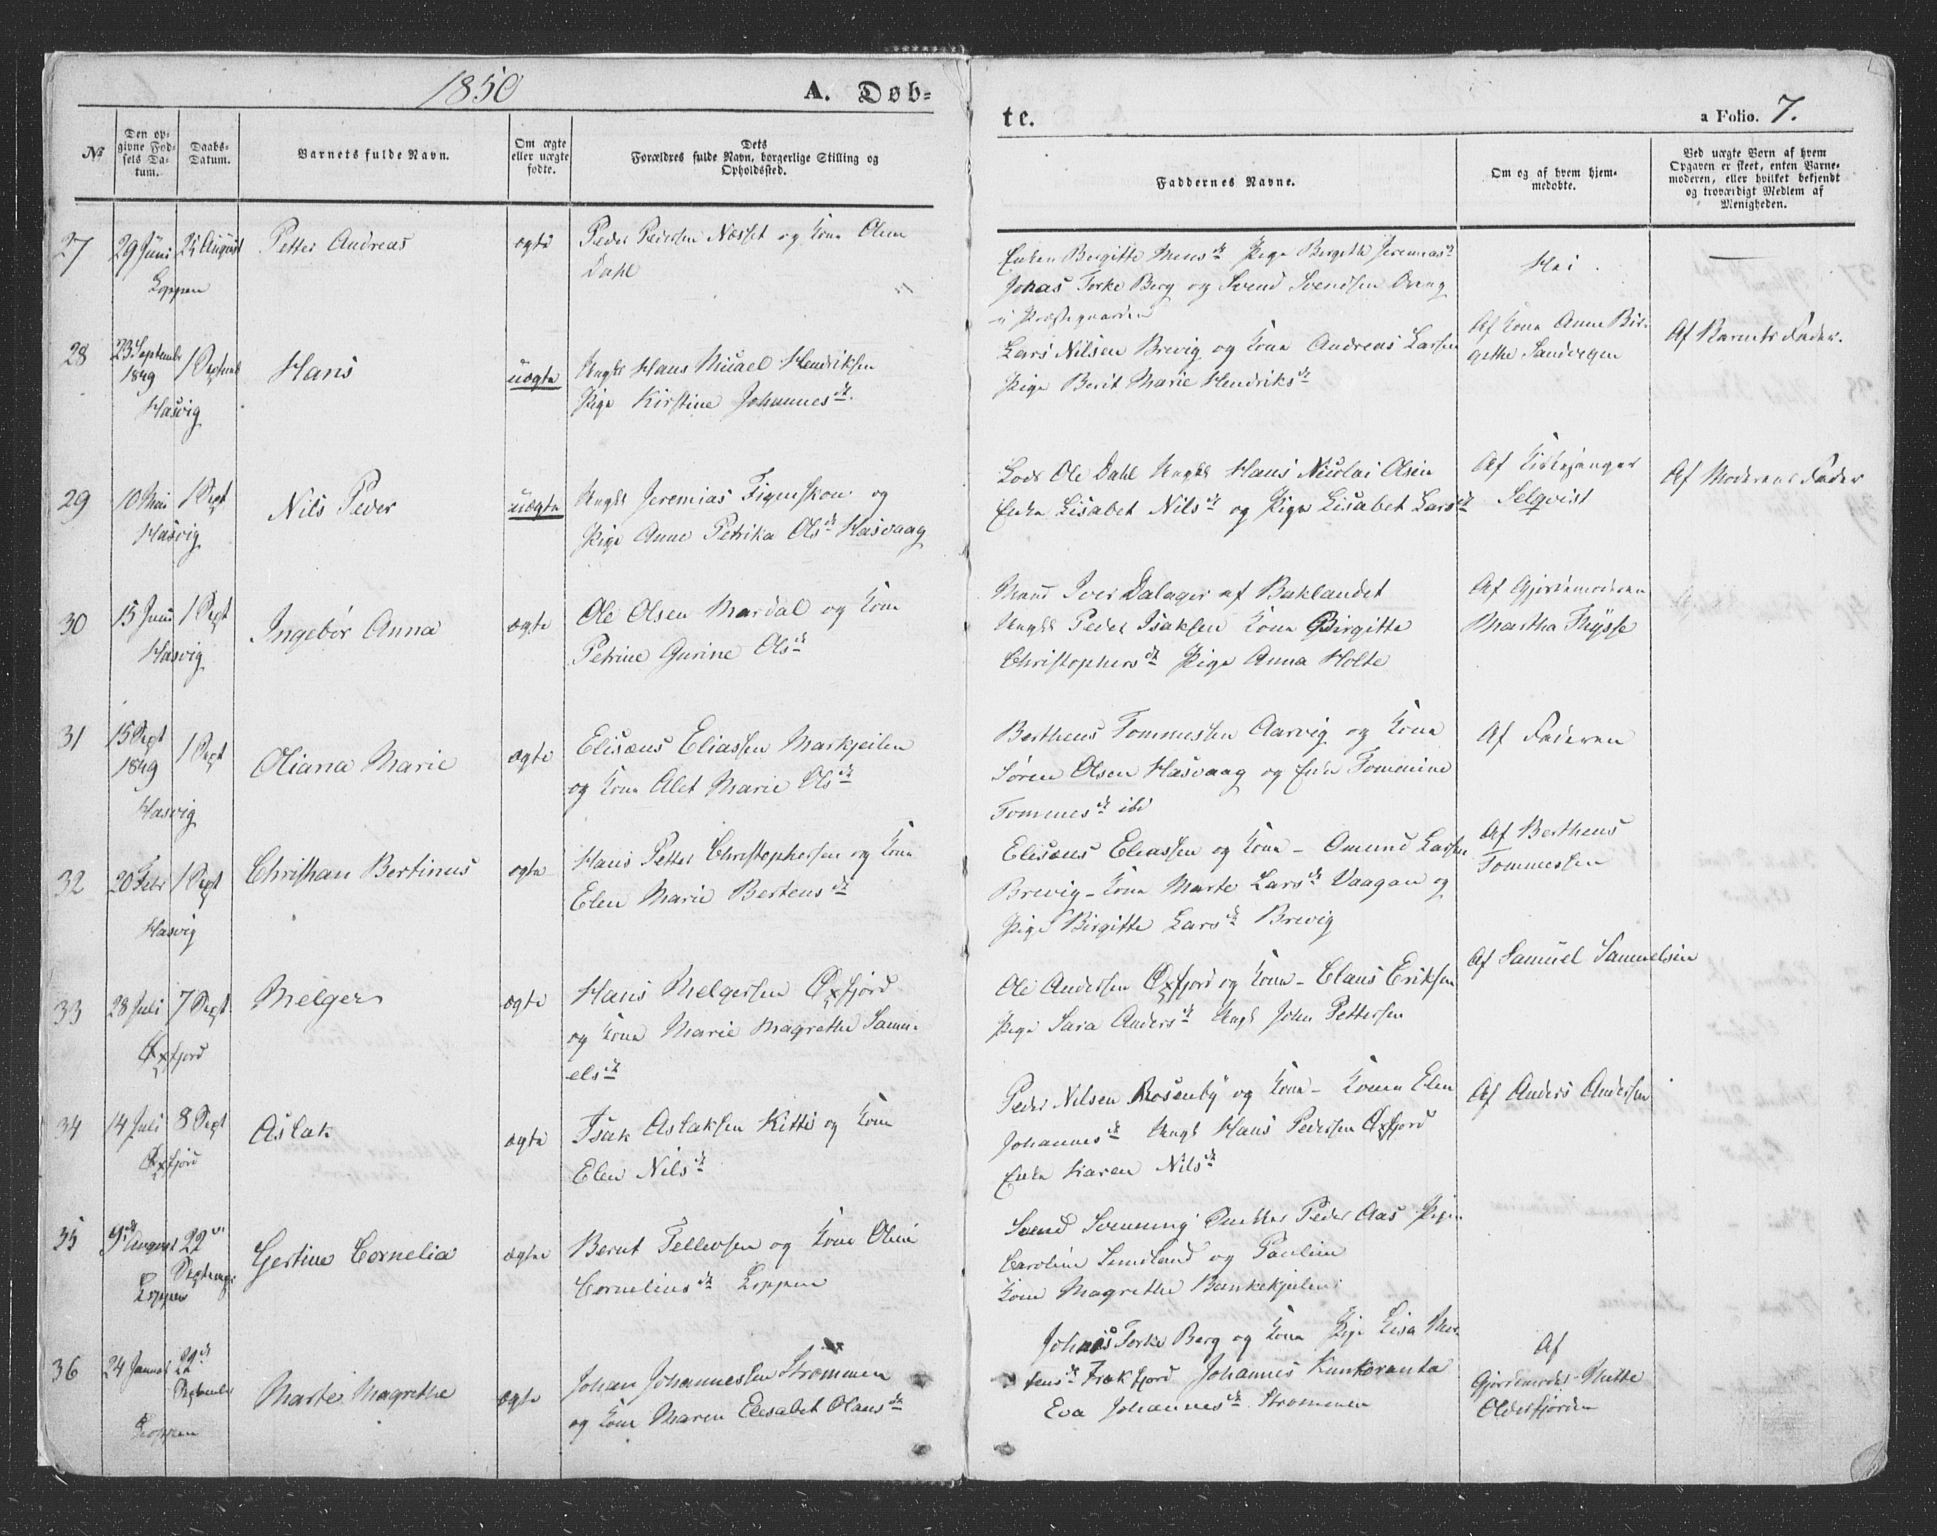 1850
A. Døb=
te.
a Folio. 7.
No
Den op=
givne Fød=
sels Da=
tum.
Daabs=
Datum.
Barnets fulde Navn.
Om ægte
eller uægte
fødte.
Dets
Forældres fulde Navn, borgerlige Stilling og
Opholdssted.
Faddernes Navne.
Om og af hvem hjem=
medøbte.
Ved uægte Børn af hvem
Opgaven er skeet, enten Barne=
moderen, eller hvilket bekjendt
og troværdigt Medlem af
Menigheden.
27
29 Juni
24 August
Loppen
Petter Andreas
ægte
Peder Pedersen Næsset og Kone Oline
Dahl
Enken Birgitte Mons dt Pige Birgith Jeremias dt
Johas Torke Berg og Svend Svendsen
i Præstegaarden
Nei.
28
23 Septembr
1849
1 Septembr
Hasvig
Hans
uægte
Ungk Hans Micael Hendriksen
Pige Kirstine Johannes dt.
Lars Nilsen Brevig og Kone Andreas Larsen
Pige Berit Marie Hendriks dt
Af Kone Anne Bir=
gitte Sandvegen
Af Barnets Fader.
29
10 Mai
1 Sept
Hasvig
Nils Peder
uægte
Ungk Jeremias og
Pige Anne Petrika Ols dt Hasvaag
Lods Ole Dahl Ungk Hans Nicolai Olsen
Enke Lisabet Nils dt og Pige Lisabet Lars dt
Af Kirkesanger
Selqvist
Af Moderens Fader
30
15 Juni
1 Sept
Hasvig
Ingebor Anna
ægte
Ole Olsen Mardal og Kone
Petrine Gurine Ols dt
Mand Iver Dalager af Baklandet
Ungk Peder Isaksen Kone Birgitte
Christophers dt Pige Anna Holte
Af Gjordemoderen
Martha Thysse
31
15 Sept
1849
1 Sept
Hasvig
Oliana Marie
ægte
Elisæus Eliassen Markjeilen
og Kone Alet Marie Ols dt
Bertheus Tommessen Aarvig og Kone
Søren Olsen Hasvaag og Enke Tommine
Tommes dt ibd
Af Faderen
32
20 Febr
1 Sept
Hasvig
Christian Bertinus
ægte
Hans Petter Christophersen og Kone
Elen Marie Berteus dt
Elisæus Eliassen og Kone - Omund Larsen
Brevig - Kone Marte Lars dt Vaagan og
Pige Birgitte Lars dt Brevig
Af Bertheus
Tommessen
33
28 Juli
7 Sept.
Øxfjord
Melger
ægte
Hans Melgersen Øxfjord
og Kone Marie Magrethe Samu=
els dt
Ole Andersen Øxfjord og Kone - Claus Eriksen
Pige Sara Anders dt Ungk John Pettersen
Af Samuel Samuelsen
34
14 Juli
8 Sept
Øxfjord
Aslak
ægte
Isak Aslaksen Kitti og Kone
Elen Nils dt
Peder Nilsen Rosenby og Kone - Konen Elen
Johannes dt Ungk Hans Pedersen Øxfjord
Enke Karen Nils dt
Af Anders Andersen
35
August
22
Septembr
Loppen
Gertine Cornelia
ægte
Bernt Tellevsen og Kone Oline
Cornelius dt Loppen
Svend Svenning Peder Aas Pige
Caroline og Pauline
Kone Magrethe Bankekjeilen.
36
24 Januar
22
Septembr
Loppen
Marte Magrethe
ægte
Johan Johannessen Strømmen
og Kone Maren Elesabet Olaus dt
Johas Torke Berg og Kone Pige Lisa Mor=
tens dt Frakfjord Johannes Kunkoranta
Eva Johannes dt Strømmen
Af
Gjordemoder
Olderfjorden